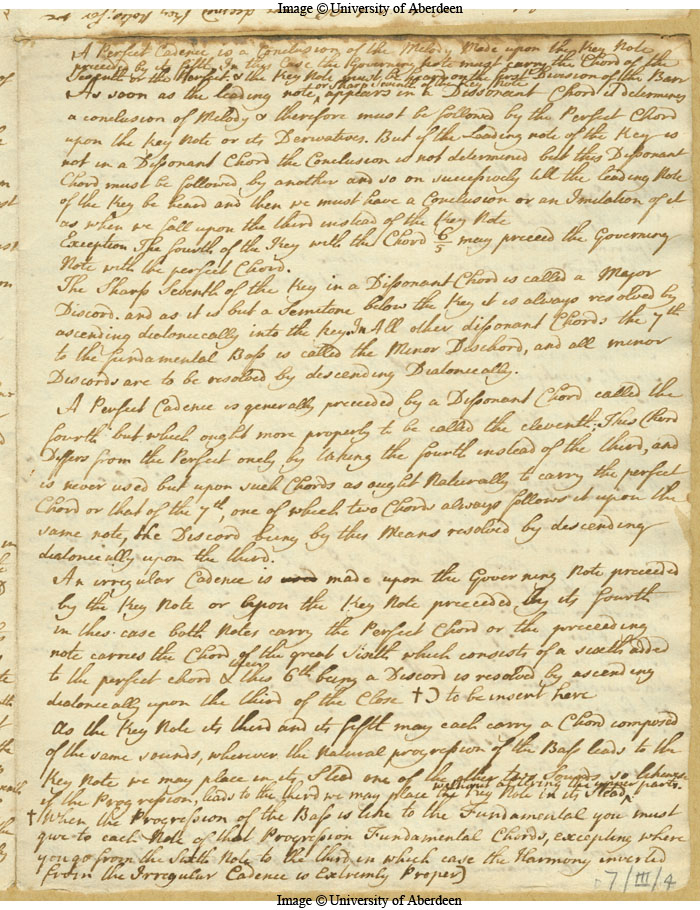 Image © University of Aberdeen
A Perfect Cadence is a Conclusion of the Melody Made upon the Key Note
preceeded by its fifth. In this Case the Governing Note must carry the Chord of the
Seventh or the Perfect. & the Key Note must be heard on the first Division of the Barr
or sharp seventh of the Key Note
As soon as the leading note, appears in a Dissonant Chord it determines
a conclusion of Melody & therefore must be followed by the Perfect Chord
upon the Key Note or its Derivatives. But if the Leading note of the Key is
not in a Dissonant Chord the Conclusion is not determined but this Dissonant
Chord must be followed by another and so on successively till the leading Note
of the Key be heard and then we must have a Conclusion or an Imitation of it
as when we fall upon the third instead of the Key Note
Exception The fourth of the Key with the Chord 6/5 may preceed the Governing
Note with the perfect Chord.
The Sharp Seventh of the Key in a Dissonant Chord is called a Major
Discord. and as it is but a Semitone below the Key it is always resolved by
ascending diatonecally into the Key. In All other dissonant Chords the 7th
to the fundamental Bass is called the Minor Dischord, and all minor
Discords are to be resolved by descending Diatonecally.
A Perfect Cadence is generally preceeded by a Dissonant Chord called the
fourth but which ought more properly to be called the eleventh; This Chord
Differs from the Perfect onely by taking the fourth instead of the third, and
is never used but upon such Chords as ought Naturally to carry the perfect
Chord or that of the 7th, one of which two Chords always follows it upon the
same note, the Discord being by this Means resolved by descending
diatonecally upon the third.
An irregular Cadence is made upon the Governing Note preceeded
by the Key Note or upon the Key Note preceeded by its fourth
in this case both Notes carry the Perfect Chord or the preceeding
note carries the Chord of the great Sixth which consists of a sixth added
to the perfect chord & this 6th being a Discord is resolved by ascending
diatonecally upon the third of the Close † ) to be insert here
As the Key Note its third and its fifth may each carry a Chord composed
of the same sounds, wherever the Natural progression of the Bass leads to the
Key Note we may place in its Stead one of the other two Sounds so likewise
without altering the upper parts.
if the Progression, leads to the third we may place the Key Note in its Stead
† (When the Progression of the Bass is like to the Fundamental you must
give to each Note of that Progression Fundamental Chords, excepting where
you go from the Sixth Note to the third in which case the Harmony inverted
from the Irregular Cadence is Extremly Proper)
7/III/4
Image © University of Aberdeen